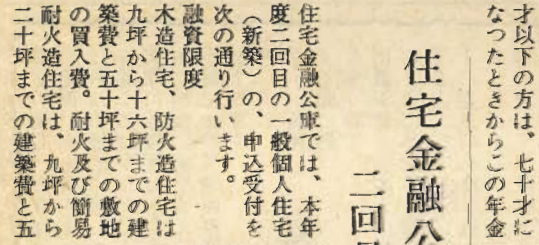 才以下の方は、七十才に
なつたときからこの年金
住宅金融公
二回
住宅金融公庫では、本年
度二回目の一般個人住宅
（新築）の、申込受付を
次の通り行います。
融資限度
木造住宅、防火造住宅は
九坪から十六坪までの建
築費と五十坪までの敷地
の買入費。耐火及び簡易
耐火造住宅は、九坪から
二十坪までの建築費と五